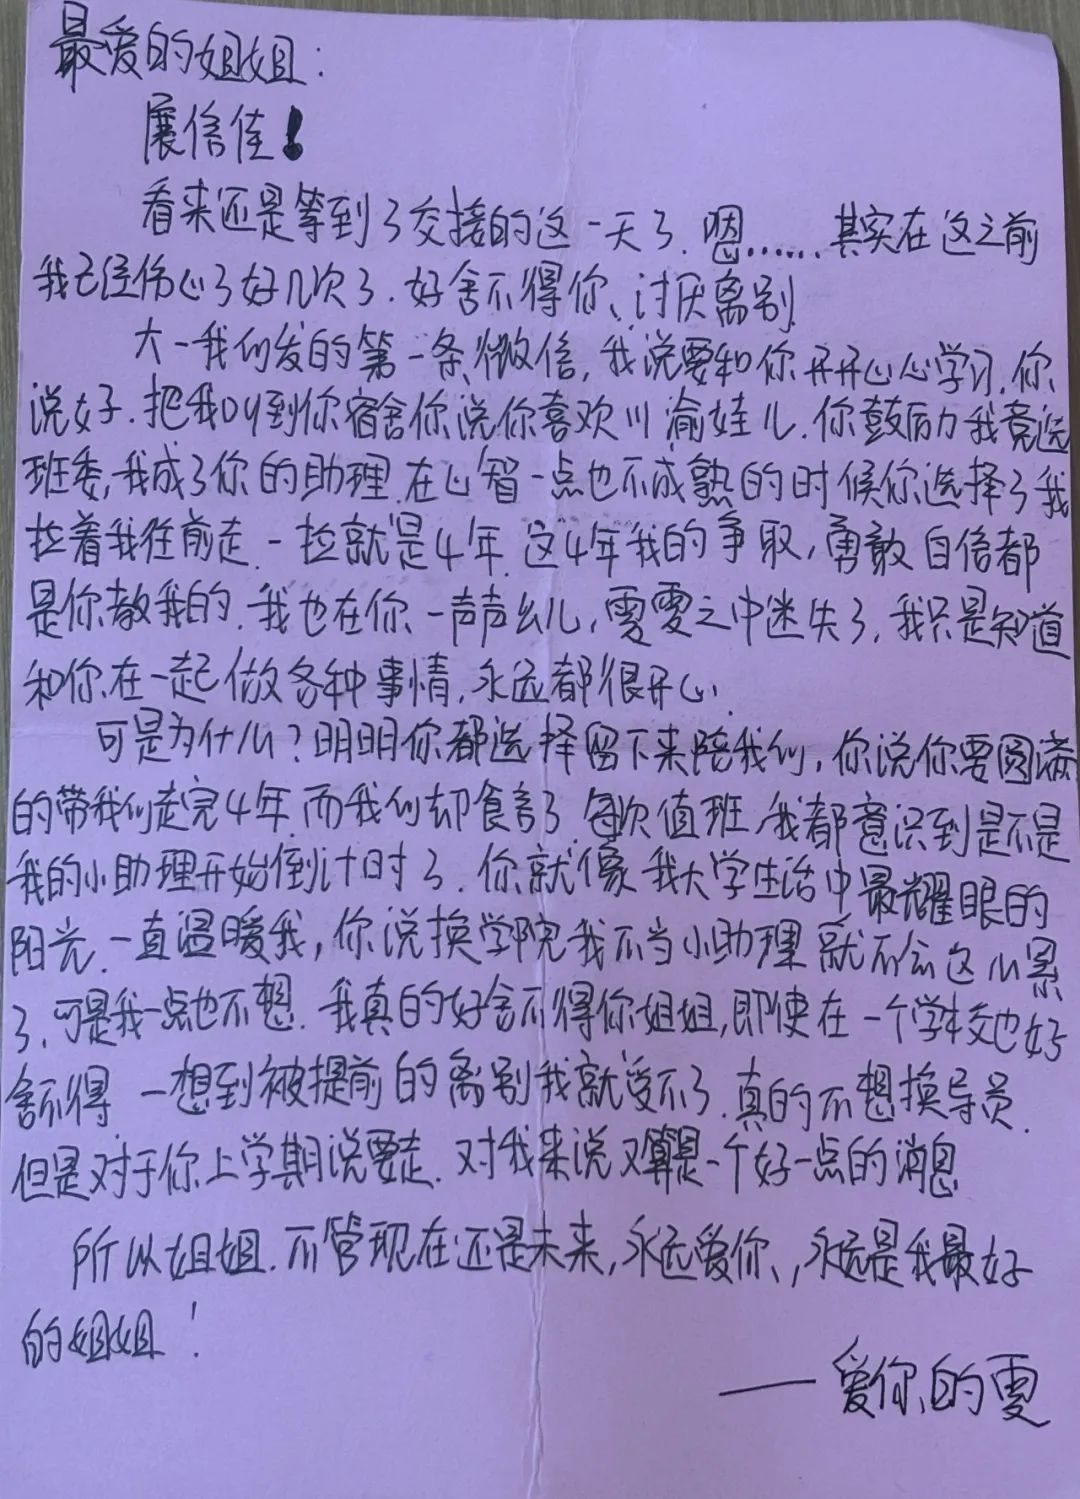 最爱的姐姐：
展信佳！
看来还是等到了交接的这一天了.嗯......其实在这之前
我已经伤心了好几次了.好舍不得你、讨厌离别
大一我们发的第一条微信,我说要和你开开心心学习.你
说好.把我叫到你宿舍你说你喜欢川渝娃儿.你鼓励我竞选
班委,我成了你的助理.在心智一点也不成熟的时候你选择了我
拉着我往前走.一拉就是4年.这4年我的争取,勇敢自信都
是你教我的.我也在你一声声幺儿,雯雯之中迷失了,我只是知道
和你在一起做各种事情,永远都很开心.
可是为什么?明明你都选择留下来陪我们,你说你要圆满
的带我们走完4年.而我们却食言了.每次值班,我都意识到是不是
我的小助理开始倒计时了.你就像我大学生活中最耀眼的
阳光.一直温暖我,你说换学院我不当小助理就不会这么累
了,可是我一点也不想.我真的好舍不得你姐姐,即使在一个学校也好
舍不得.一想到被提前的离别我就受不了.真的不想换导员.
但是对于你上学期说要走.对我来说又算是一个好一点的消息
所以姐姐.不管现在还是未来,永远爱你,永远是我最好
的姐姐!
——爱你的雯